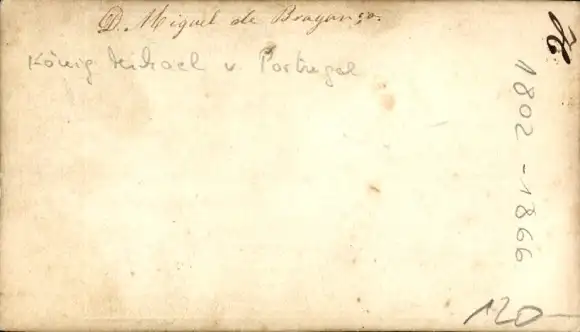 D. Miguel de Bragança.
König Michael v. Portugal
1802 - 1866
120-